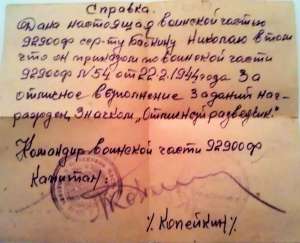 Справка.
Дана настоящая воинской частью
92900ф сер-ту Баскину Николаю в том
что он приказом по воинской части
92900ф №54 от 22.2.1944 года За
отличное выполнение Заданий наг-
ражден Значком „Отличный разведчик."
Командир воинской части 92900ф
Капитан:
\ Копейкин \